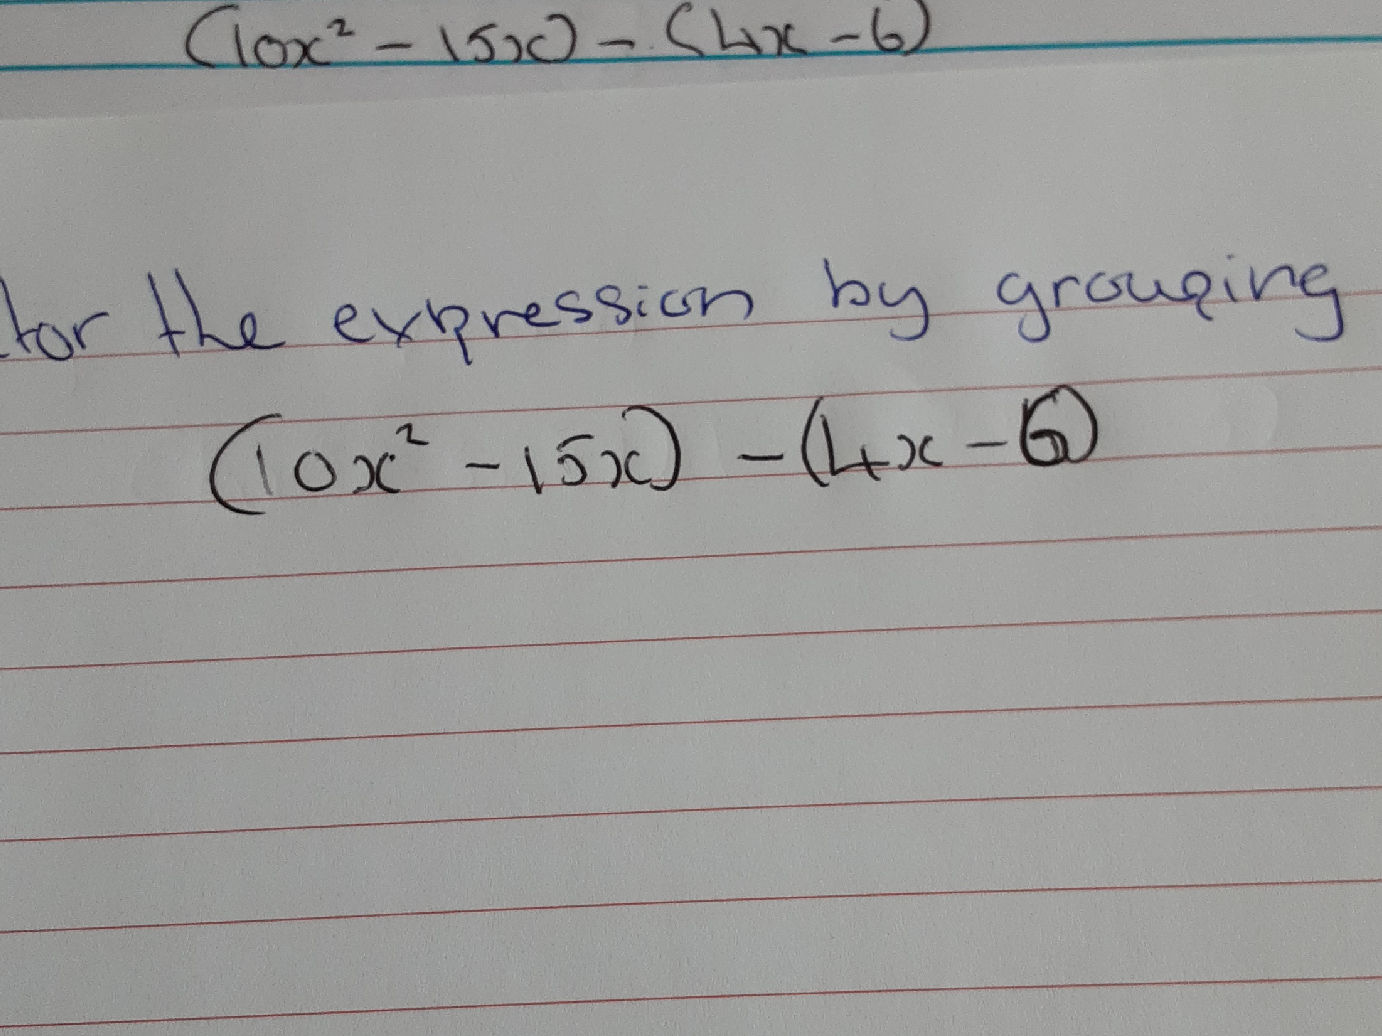 (10x² - 15x) - (4x - 6)
tor the expression by grouping
(10x² - 15x) - (4x - 6)